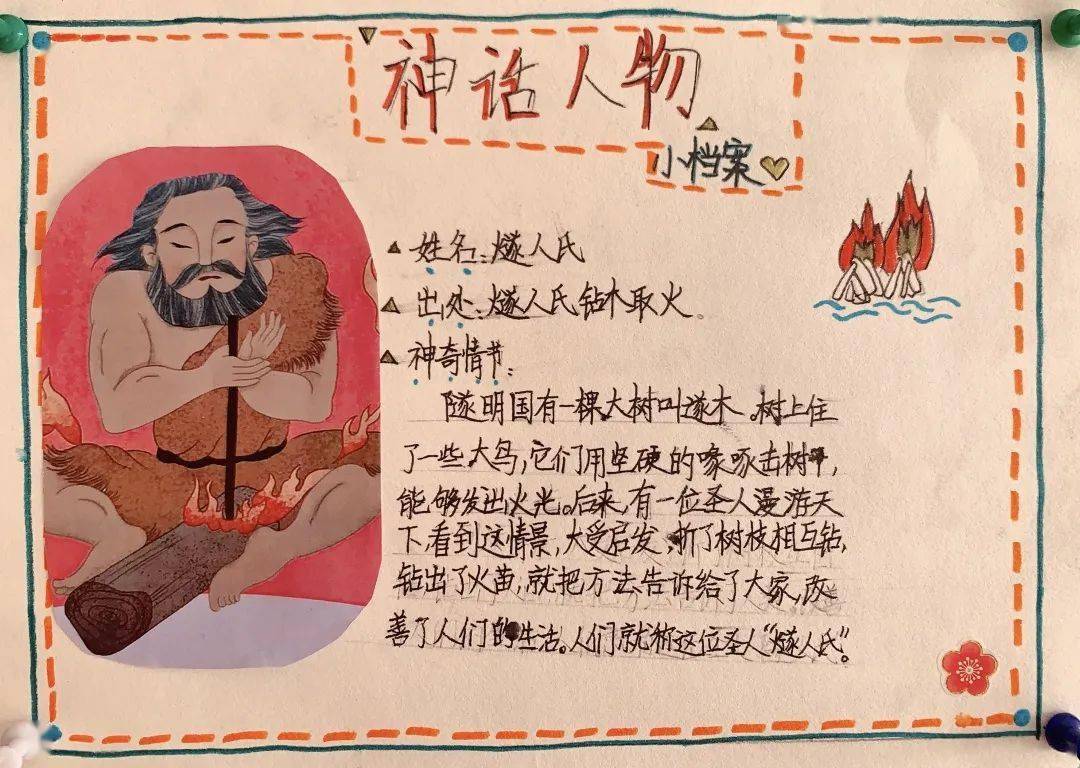 神话人物
小档案
姓名:燧人氏
出处:燧人氏钻木取火
神奇情节:
隧明国有一棵大树叫遂木。树上住
了一些大鸟,它们用坚硬的喙啄击树干,
能够发出火光。后来,有一位圣人漫游天
下,看到这情景,大受启发,折了树枝相互钻,
钻出了火苗,就把方法告诉给了大家,改
善了人们的生活。人们就称这位圣人“燧人氏”。